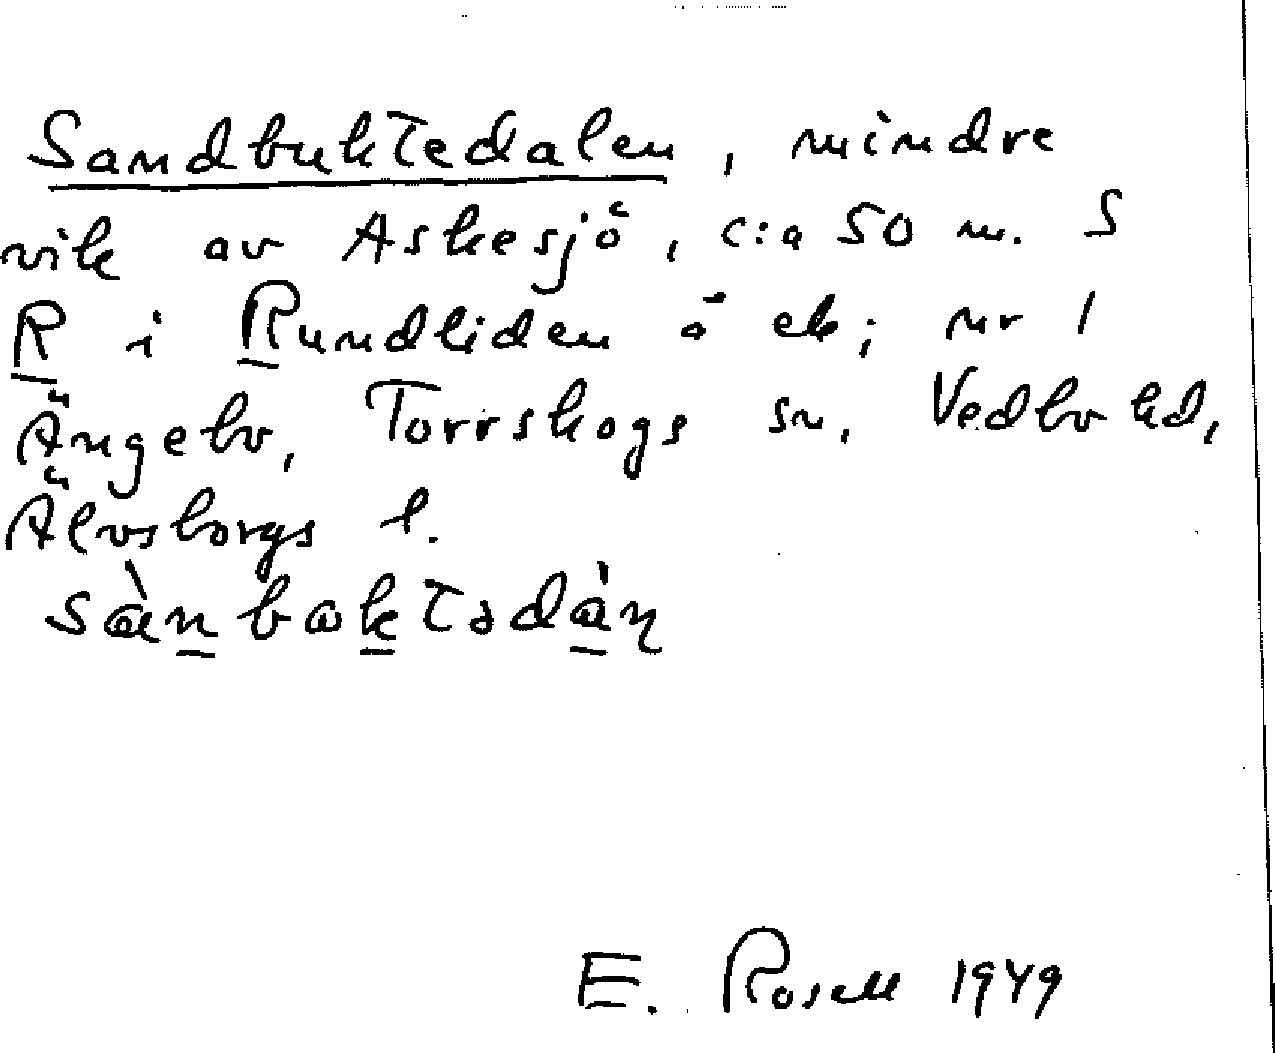 Sandbuktedalen, mindre
vik av Askesjö, c:a 50 m. S
R i Rundliden ö ek; nr 1
Ängebo, Torrskogs sn, Vedbo hd,
Älvsborgs l.
E. Rosell 1949